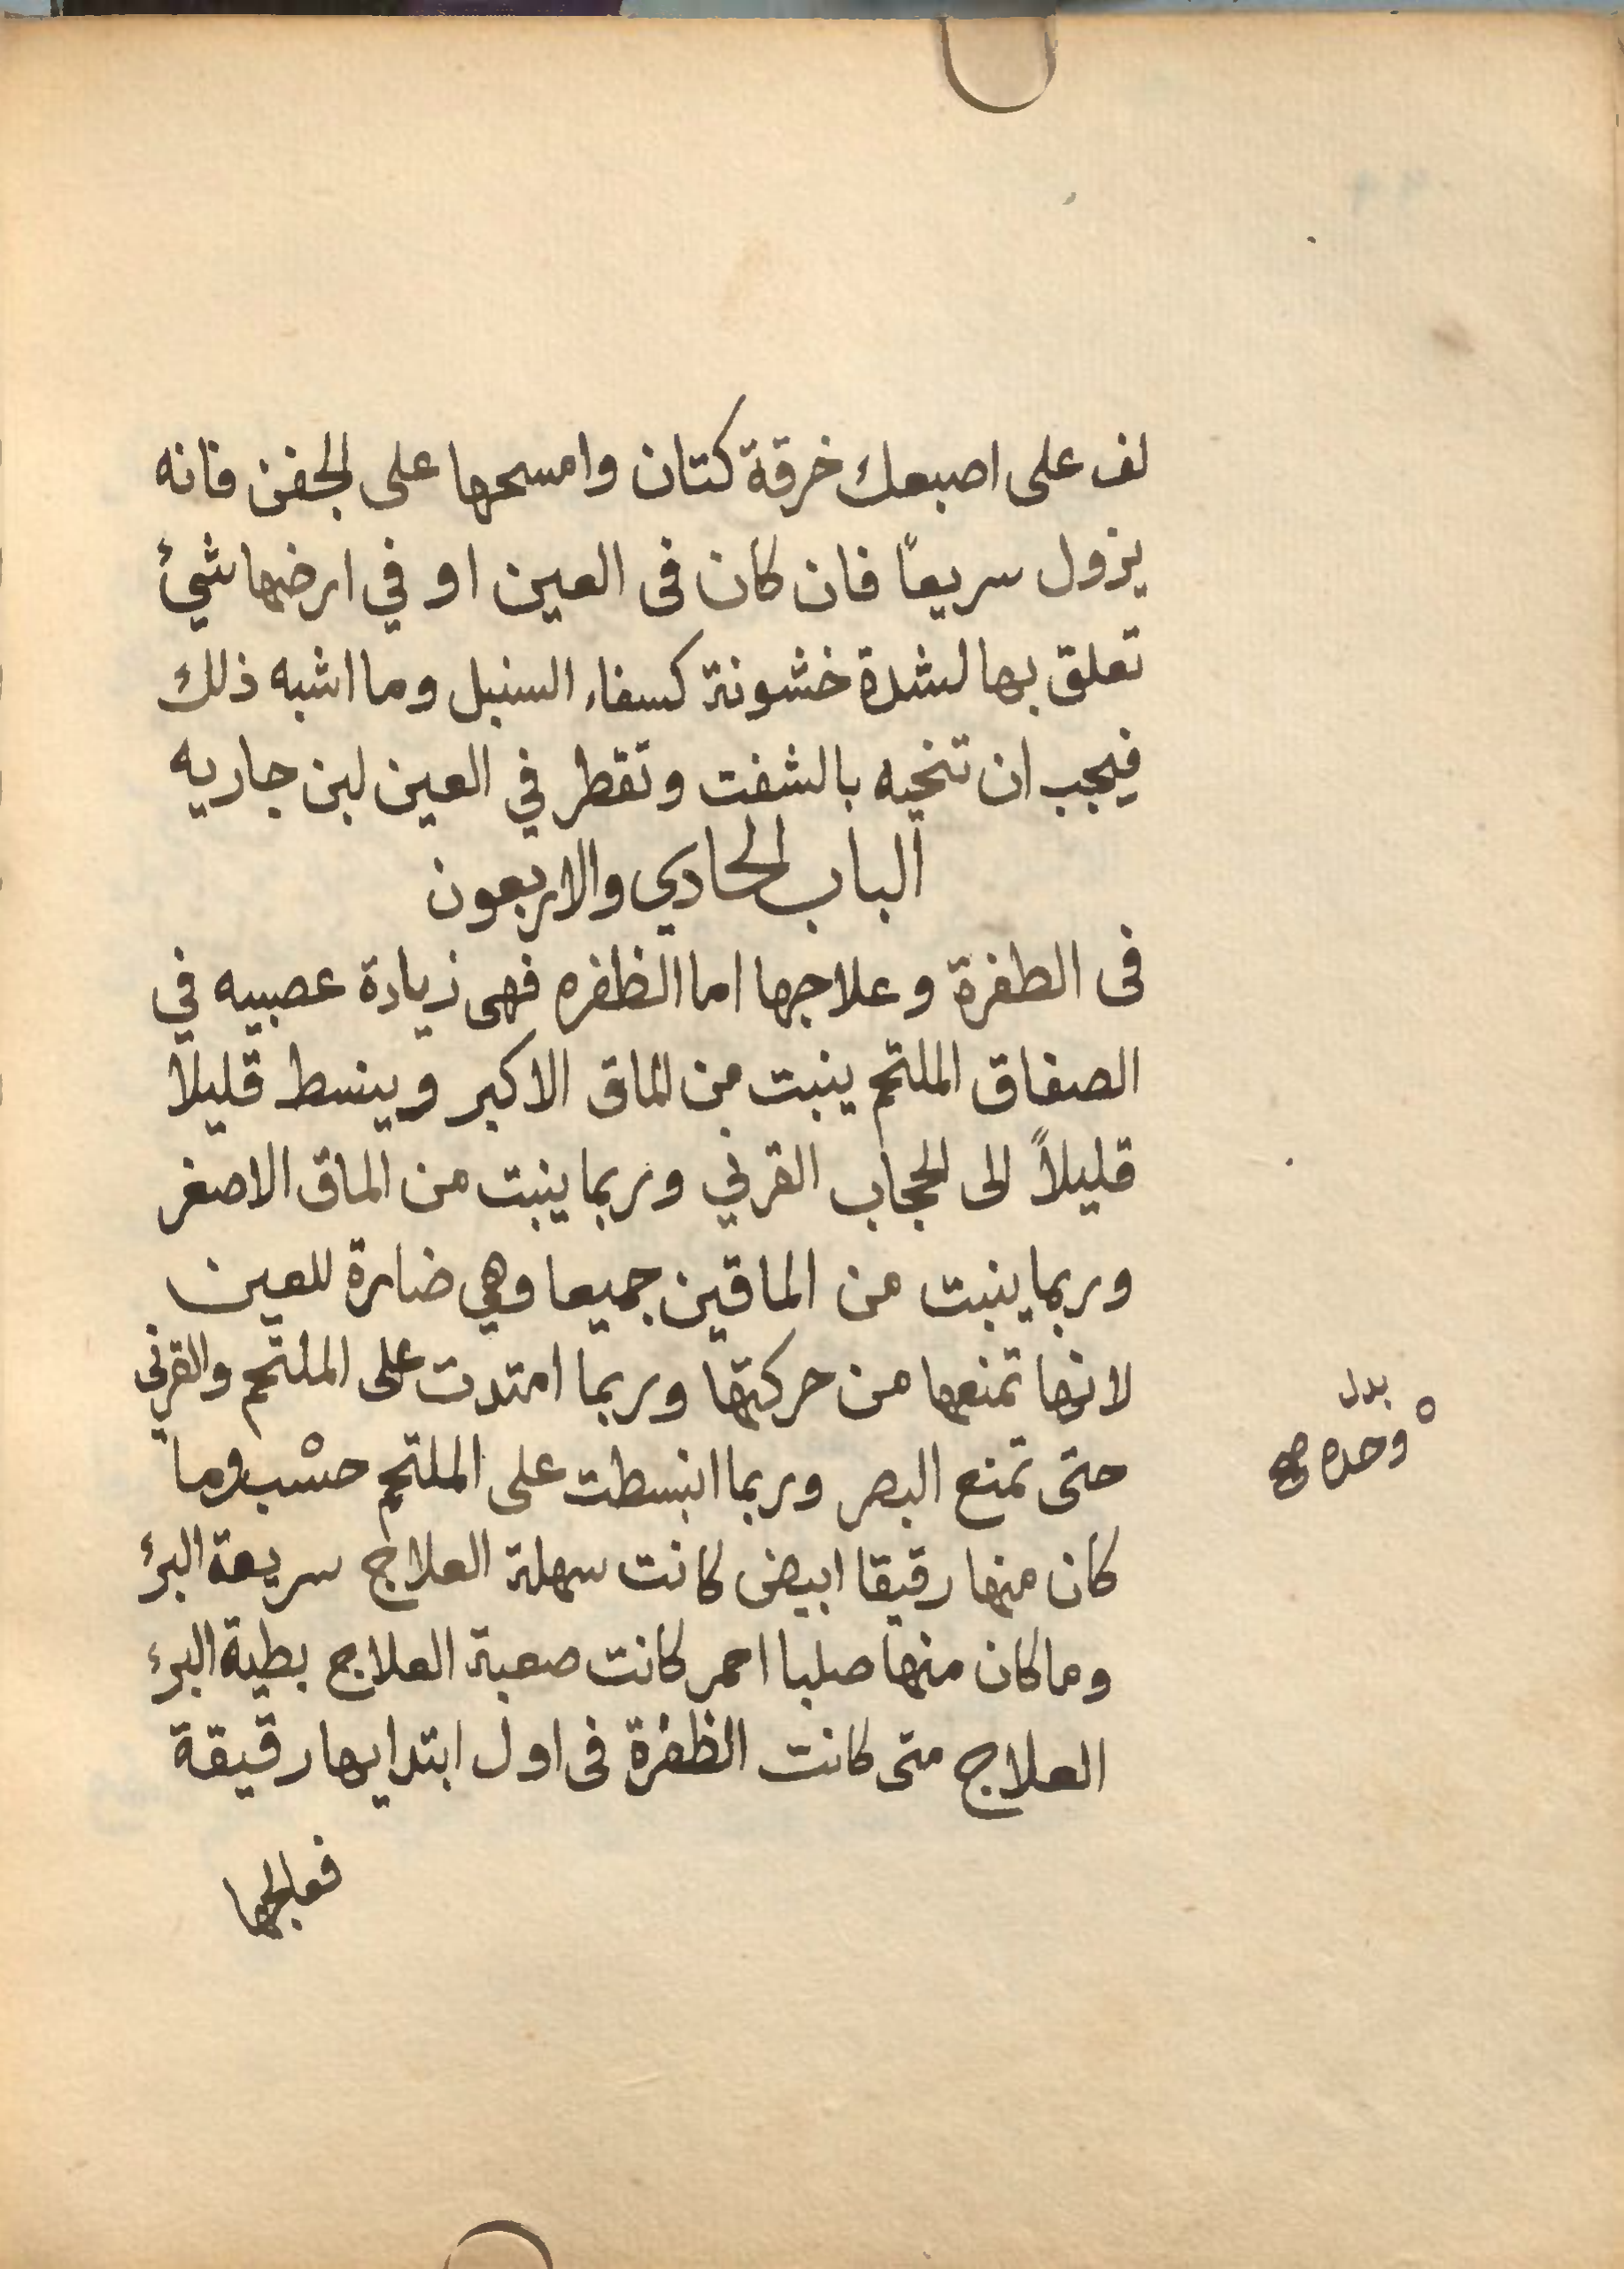 لف على اصبعك خرقة كتان وامسحها على الجفن فانه
يزول سريعاً فان كان فى العين او في ارضها شئ
تعلق بها لشدة خشونة كسفاء السنبل وما اشبه ذلك
فيجب ان تنحيه بالشفت وتقطر في العين لبن جاريه
الباب الحادي والاربعون
فى الطفرة وعلاجها اما الظفره فهى زيادة عصبيه في
الصفاق الملتحم ينبت من الماق الاكبر وينسط قليلا
قليلاً الى الحجاب القرني وربما ينبت من الماق الاصغر
وربما ينبت من الماقين جميعا وهي ضارة للعين
لانها تمنعها من حركتها وربما امتدت على الملتحم والقرنى
حتى تمنع البصر وربما انبسطت على الملتحم حسْب وما
كان منها رقيقا ابيض كانت سهلة العلاج سريعة البرئ
وما كان منها صلبا احمر كانت صعبة العلاج بطية البرء
العلاج متى كانت الظفرة فى اول ابتدايها رقيقة
فعالجها
بدل
وحده صح